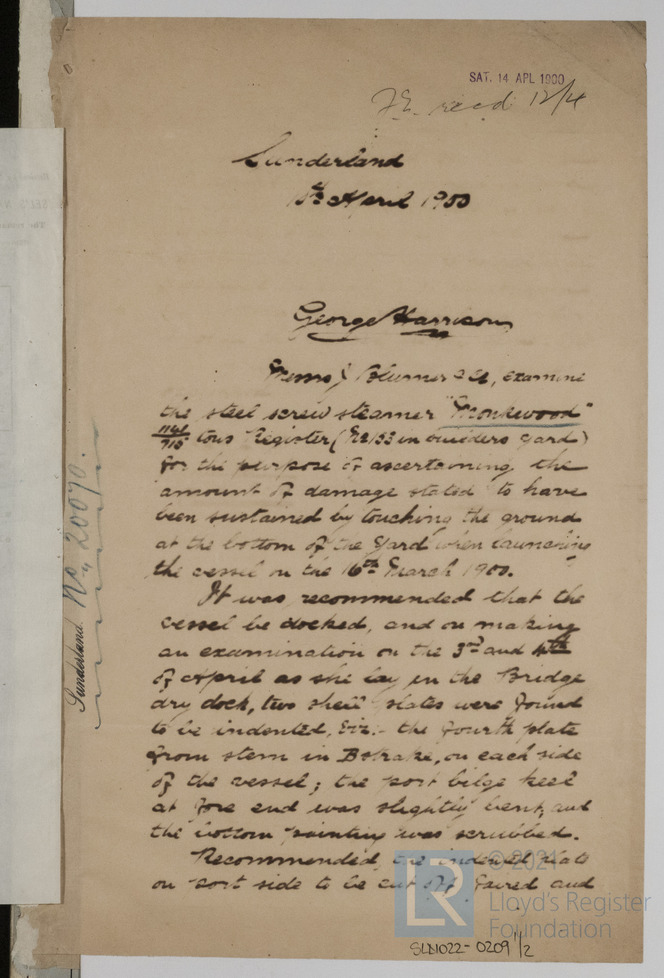 SAT. 14 APL 1900
recd 12/4
Sunderland
April 1900
George Harrison
J Blumer & Co, examine
the steel screw steamer "Monkwood"
1141/715 tons Register (No 153 in builders yard)
for the purpose of ascertaining the
amount of damage stated to have
been sustained by touching the ground
at the bottom of the Yard when launching
the vessel on the 16th March 1900.
It was recommended that the
vessel be docked, and on making
an examination on the 3rd and 4th
of April as she lay in the Bridge
dry dock, two shell plates were found
to be indented, viz:- the fourth plate
from stem in B strake, on each side
of the vessel; the port bilge keel
at fore end was slightly bent, and
the bottom painting was scrubbed.
Recommended the indented plate
on port side to be cut off faired and
Sunderland No. 20070.
© 2021
Lloyd's Register
Foundation
LR
SLD022-0209 1/2